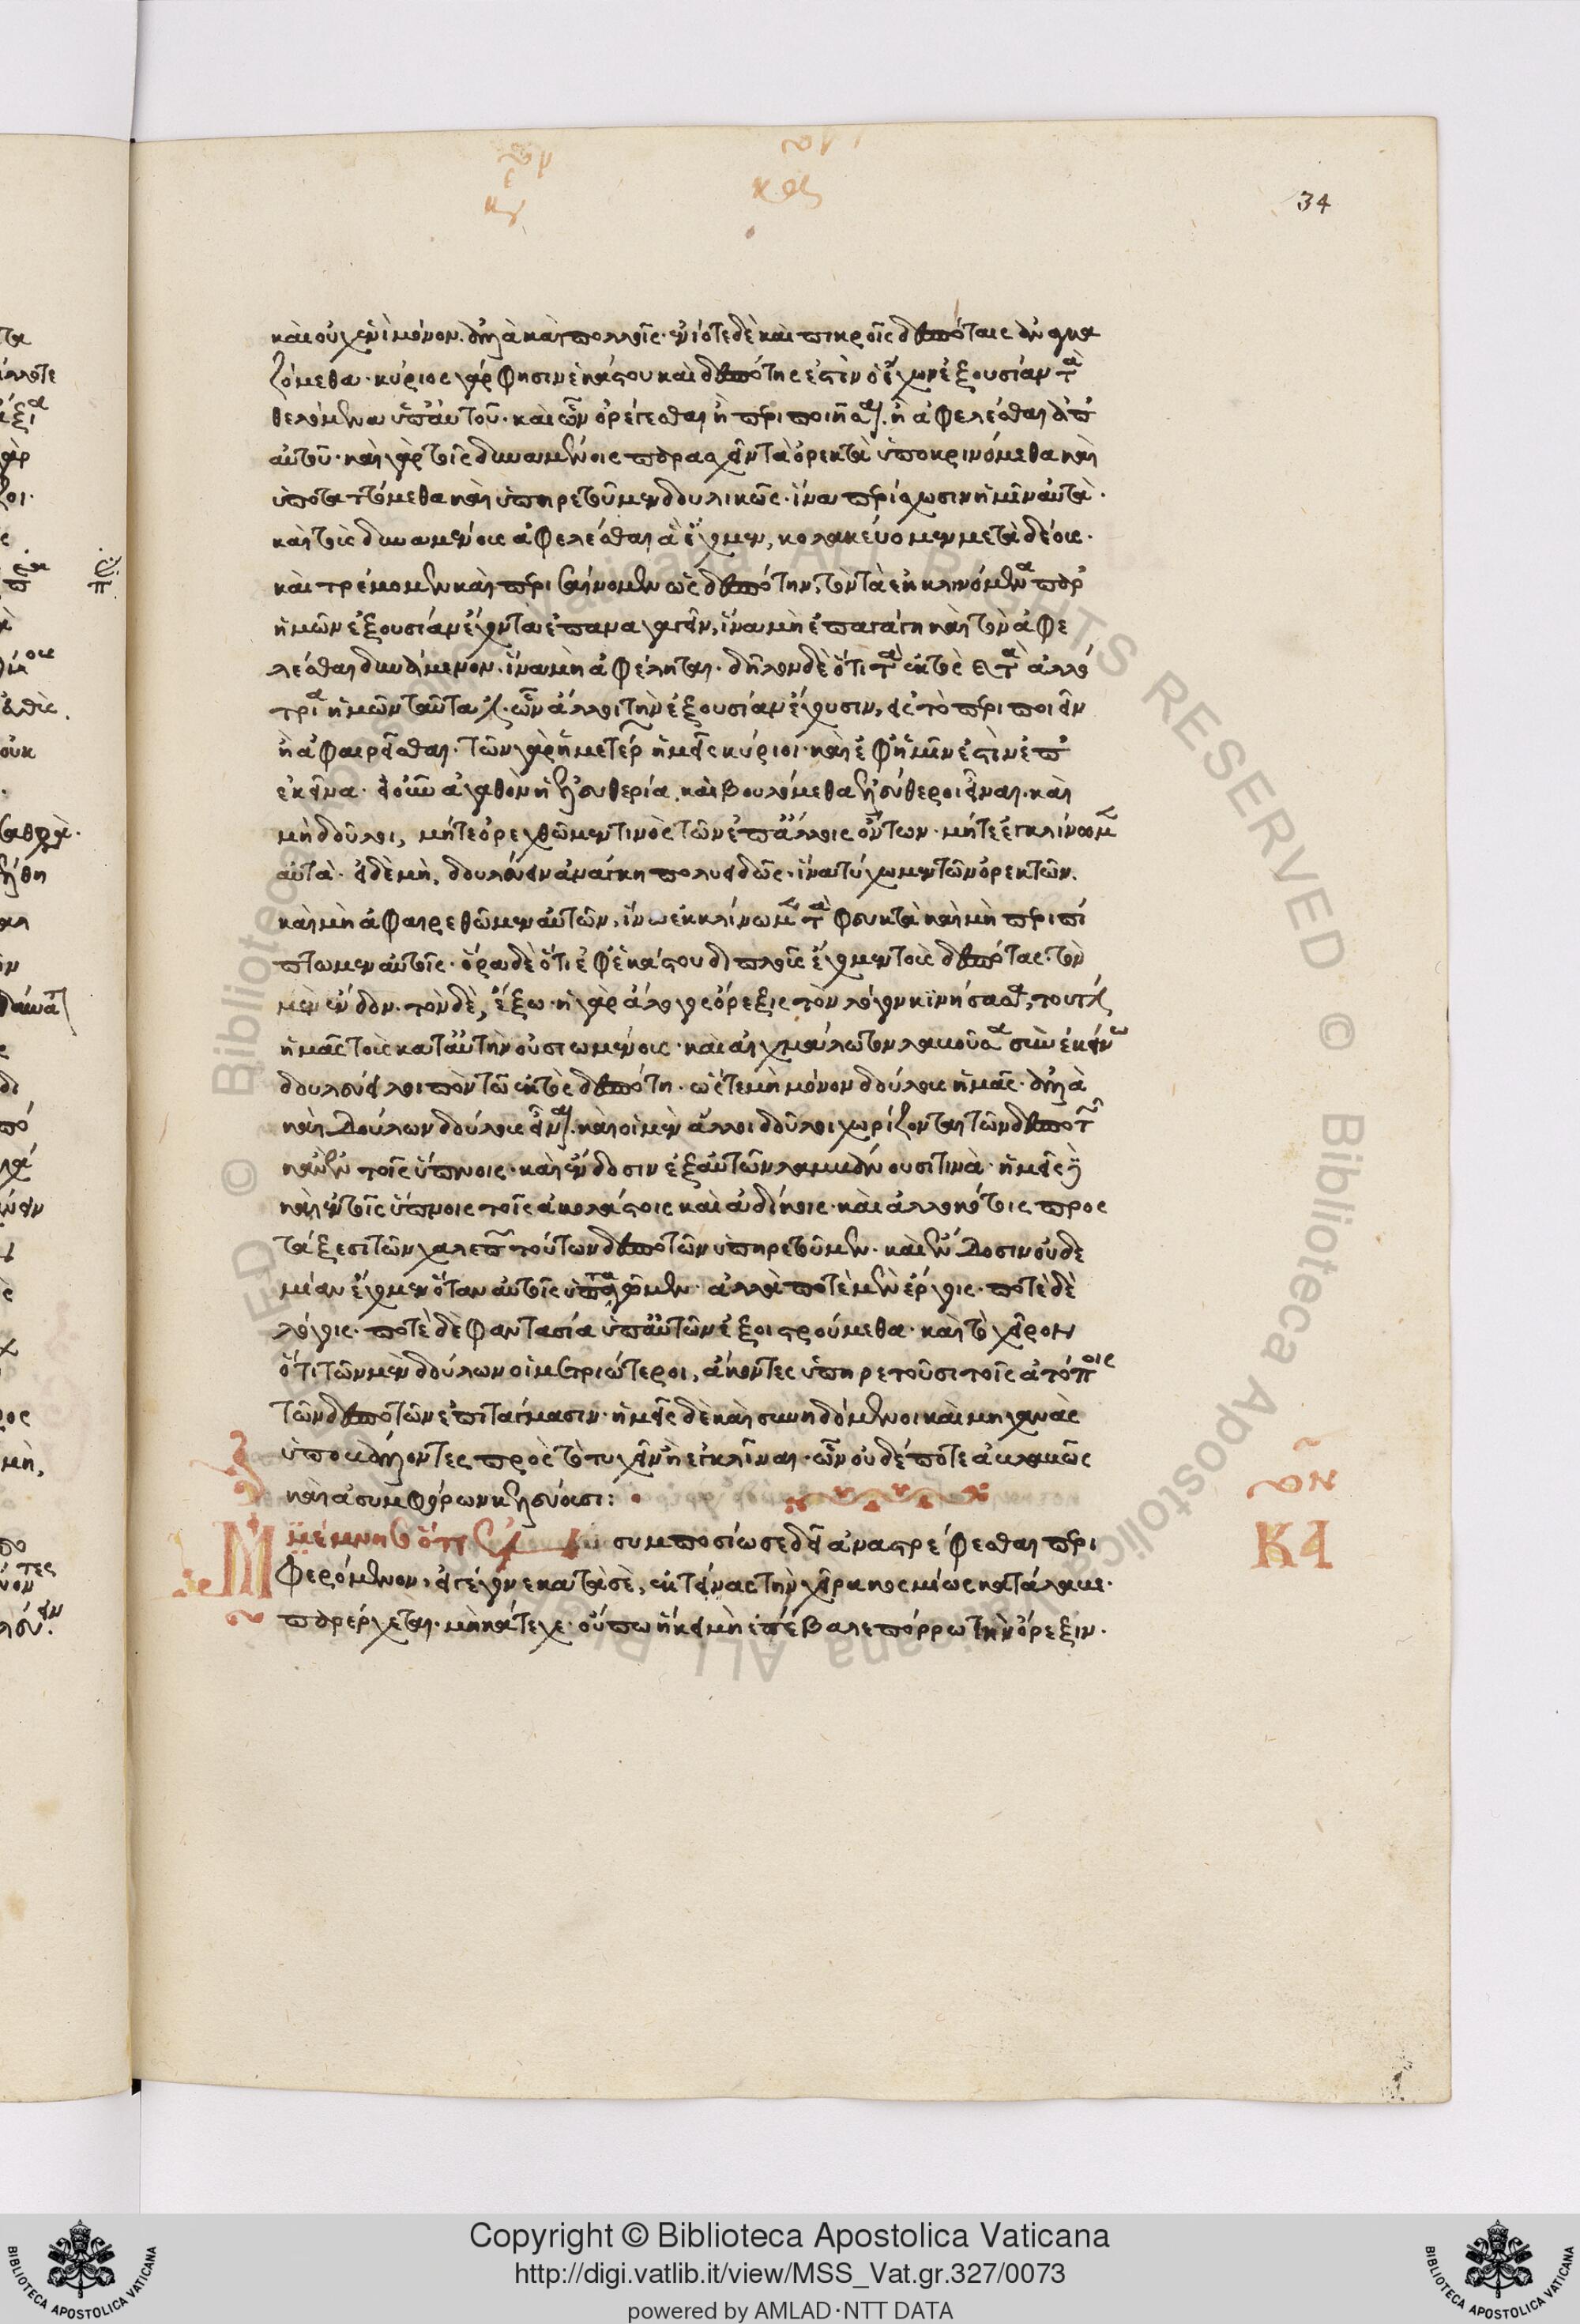 34
καὶ οὐχ ἑνὶ μόνον. ἀλλὰ καὶ πολλοῖς· ἐνίοτε δὲ καὶ πικροῖς δεσπόταις ἀναγκα
ζόμεθα· κύριος γάρ φησιν ἑκάστου καὶ δεσπότης ἐστὶν ὁ ἔχων ἐξουσίαν τὰ
θελόμενα ὑπ' αὐτοῦ· καὶ ὧν ὀρέγεσθαι ἢ περιποιῆσαι. ἢ ἀφελέσθαι ἀπ'
αὐτοῦ· καὶ γὰρ τοῖς δυναμένοις παρασχεῖν τὰ ὀρεκτὰ ὑποκρινόμεθα καὶ
ὑποταττόμεθα καὶ ὑπηρετοῦμεν δουλικῶς· ἵνα παράσχωσιν ἡμῖν αὐτά·
καὶ τοῖς δυναμένοις ἀφελέσθαι ἃ ἔχομεν, κολακεύομεν μετὰ δέους·
καὶ τρέμομεν καὶ περισαίνομεν ὡς δεσπότην, τὸν τὰ ἐκκλινόμενα παρ'
ἡμῶν ἐξουσίαν ἔχοντα ἐπαναγαγεῖν, ἵνα μὴ ἐπαγάγη καὶ τὸν ἀφε
λέσθαι δυνάμενον. ἵνα μὴ ἀφέληται. δῆλον δὲ ὅτι τὰ ἐκτὸς καὶ τὰ ἀλλό
τρια ἡμῶν ταῦτα ἐστὶν. ὧν ἄλλοι τὴν ἐξουσίαν ἔχουσιν, εἰς τὸ περιποιεῖν
ἢ ἀφαιρεῖσθαι. τῶν γὰρ ἡμετέρων ἡμεῖς κύριοι· καὶ ἐφ' ἡμῖν ἐστὶν ἐπ'
ἐκεῖνα· εἰ οὖν ἀγαθὸν ἡ ἐλευθερία. καὶ βουλόμεθα ἐλεύθεροι εἶναι. καὶ
μὴ δοῦλοι, μήτε ὀρεχθῶμεν τινὸς τῶν ἐπ' ἄλλοις ὄντων· μήτε ἐγκλίνωμεν
αὐτά· εἰ δὲ μὴ, δουλεύειν ἀνάγκη πολυειδῶς· ἵνα τύχωμεν τῶν ὀρεκτῶν.
καὶ μὴ ἀφαιρεθῶμεν αὐτῶν, ἵνα ἐκκλίνωμεν τὰ φευκτὰ καὶ μὴ περιπί
πτωμεν αὐτοῖς· ὅρα δὲ ὅτι ἐφ' ἑκάστου διπλοῦς ἔχομεν τοὺς δεσπότας· τὸν
μὲν ἔνδον. τὸν δὲ, ἔξω· ἡ γὰρ ἄλογος ὄρεξις τὸν λόγον κινήσασα, τουτέστιν
ἡμᾶς τοὺς κατ' αὐτὴν οὐσιωμένους· καὶ αἰχμάλωτον λαβοῦσα σὺν ἐκείνω
δουλεύει λοιπὸν τῶ ἐκτὸς δεσπότη· ὥστε μὴ μόνον δούλους ἡμᾶς· ἀλλὰ
καὶ δούλων δούλους εἶναι. καὶ οἱ μὲν ἄλλοι δοῦλοι χωρίζονται τῶν δεσποτῶν
κἂν ἐν τοῖς ὕπνοις· καὶ ἔνδοσιν ἐξ αὐτῶν λαμβάνουσι τινά· ἡμεῖς δὲ
καὶ ἐν τοῖς ὕπνοις τοῖς ἀκολάστοις καὶ ἀδίκοις· καὶ ἀλλοκότοις προς
τάξεσι τῶν χαλεπῶν τούτων δεσποτῶν ὑπηρετοῦμεν· καὶ ἔνδοσιν οὐδε
μίαν ἔχομεν ὅταν αὐτοῖς ὑποταγῶμεν· ἀλλὰ ποτὲ μὲν ἔργοις· ποτὲ δὲ
λόγοις· ποτὲ δὲ φαντασία ὑπ' αὐτῶν ἐξοιστρούμεθα· καὶ τὸ χεῖρον
ὅτι τῶν μὲν δούλων οἱ μετριώτεροι, ἄκοντες ὑπηρετοῦσι τοῖς ἀτόποις
τῶν δεσποτῶν ἐπιτάγμασιν· ἡμεῖς δὲ καὶ συνηδόμενοι καὶ μηχανὰς
ὑποβάλλοντες πρὸς τὸ τυχεῖν ἢ ἐγκλῖναι· ὧν οὐδέποτε ἀβλαβῶς
καὶ ἀσυμφόρων κελεύουσι:
Μέμνησο ὅτι ὡς ἐν συμποσίω σε δεῖ ἀναστρέφεσθαι περι
φερόμενον, εἰ γέγονε κατὰ σὲ, ἐκτείνας τὴν χεῖρα κοσμίως κατάλαβε·
παρέρχεται· μὴ κάτεχε· οὔπω ἥκει μὴ ἐπέβαλε πόρρω τὴν ὄρεξιν.
Copyright © Biblioteca Apostolica Vaticana
http://digi.vatlib.it/view/MSS_Vat.gr.327/0073
powered by AMLAD·NTT DATA